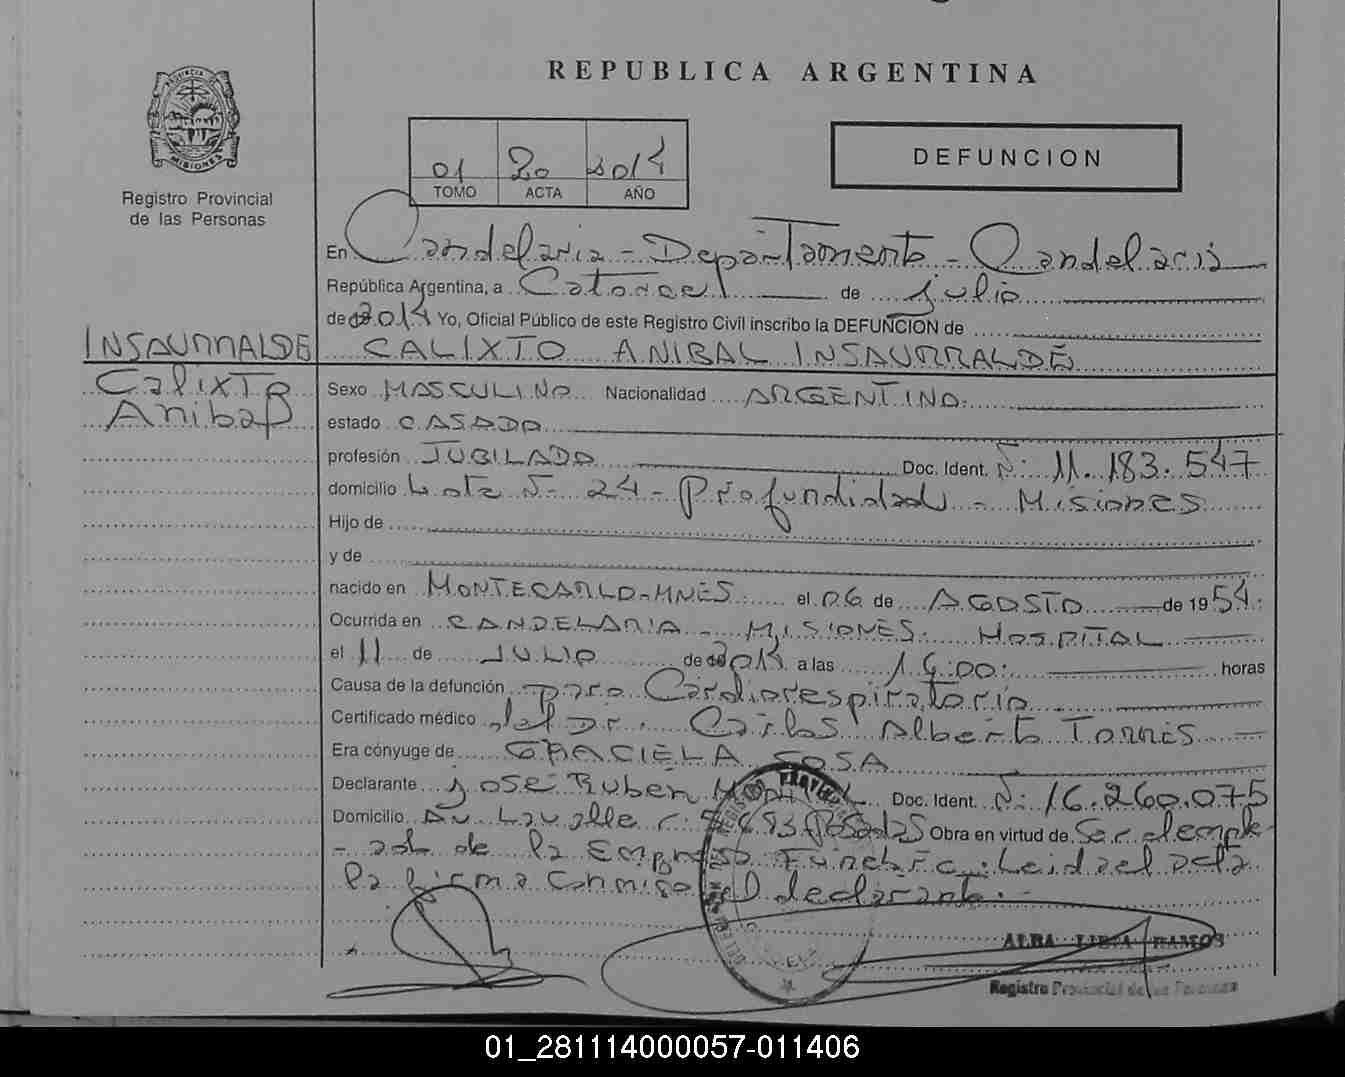 REPUBLICA ARGENTINA
PROVINCIA DE
MISIONES
Registro Provincial
de las Personas
01 20 2014
TOMO ACTA AÑO
DEFUNCION
En Candelaria - Departamento - Candelaria
República Argentina, a Catorce de Julio
de 2014 Yo, Oficial Público de este Registro Civil inscribo la DEFUNCION de
INSAURRALDE
CALIXTO ANIBAL INSAURRALDE
Calixto
Anibal
Sexo MASCULINO Nacionalidad ARGENTINO.
estado CASADO
profesión JUBILADO Doc. Ident. Nº: 11.183.547
domicilio Lote Nº 24 - Profundidad - Misiones
Hijo de
y de
nacido en MONTECARLO-MNES. el 06 de AGOSTO de 1954.
Ocurrida en CANDELARIA - MISIONES. HOSPITAL
el 11 de JULIO de 2014 a las horas
Causa de la defunción paro Cardiorespiratorio
Certificado médico del Dr. Carlos Alberto Torres
Era cónyuge de GRACIELA SOSA
Declarante José Rubén Doc. Ident. Nº: 16.260.075
Domicilio Av. Lavalle Posadas Obra en virtud de Ser emple
- ado de la Empresa Funebre. Leida el acta
la firma conmigo el declarante.-
ALBA RAMOS
Registro Provincial de las Personas
01_281114000057-011406